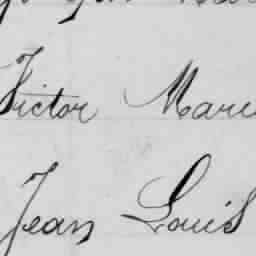 Victor Marie
Jean Louis